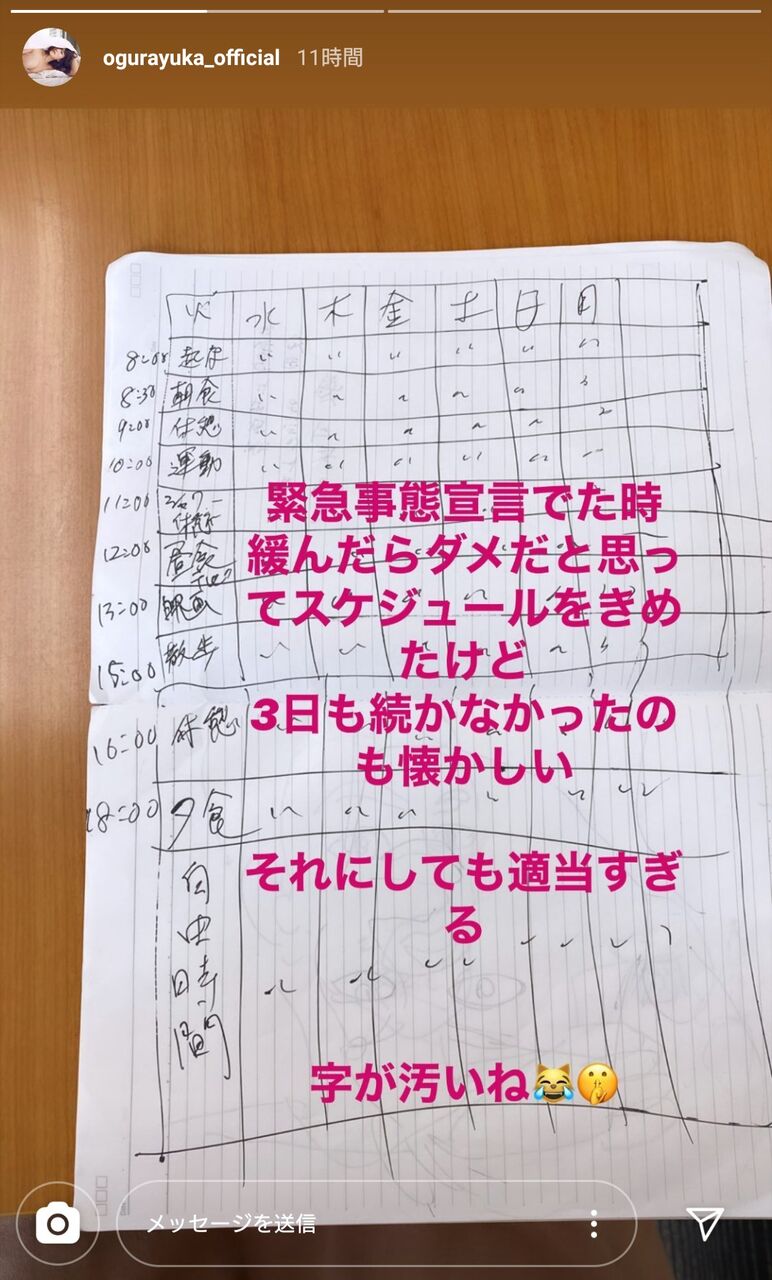 ogurayuka_official 11時間
火 水 木 金 土 日 月
8:00 起床 〃 〃 〃 〃 〃 〃
8:30 朝食
9:00 休憩
10:00 運動
11:00
緊急事態宣言でた時
12:00 昼食
緩んだらダメだと思っ
13:00 映画
てスケジュールをきめ
15:00 散歩
たけど
16:00 休憩
3日も続かなかったの
も懐かしい
18:00 夕食
それにしても適当すぎ
る
自由時間
字が汚いね😹🤫
メッセージを送信